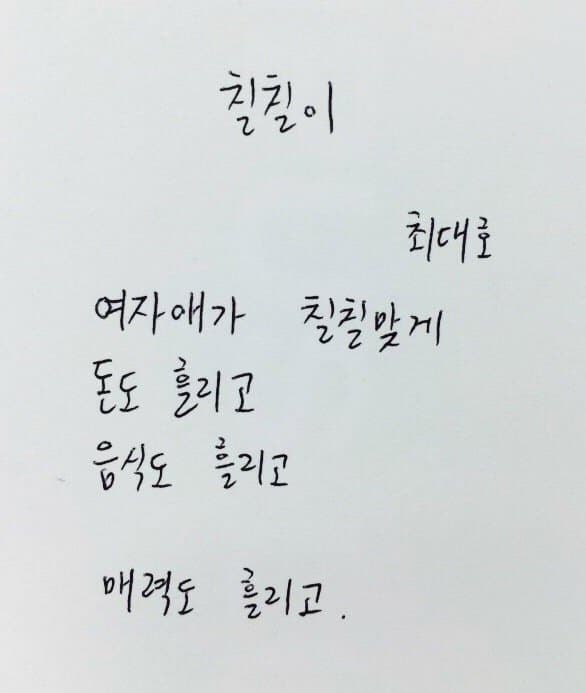 칠칠이
최대호
여자애가 칠칠맞게
돈도 흘리고
음식도 흘리고
매력도 흘리고.